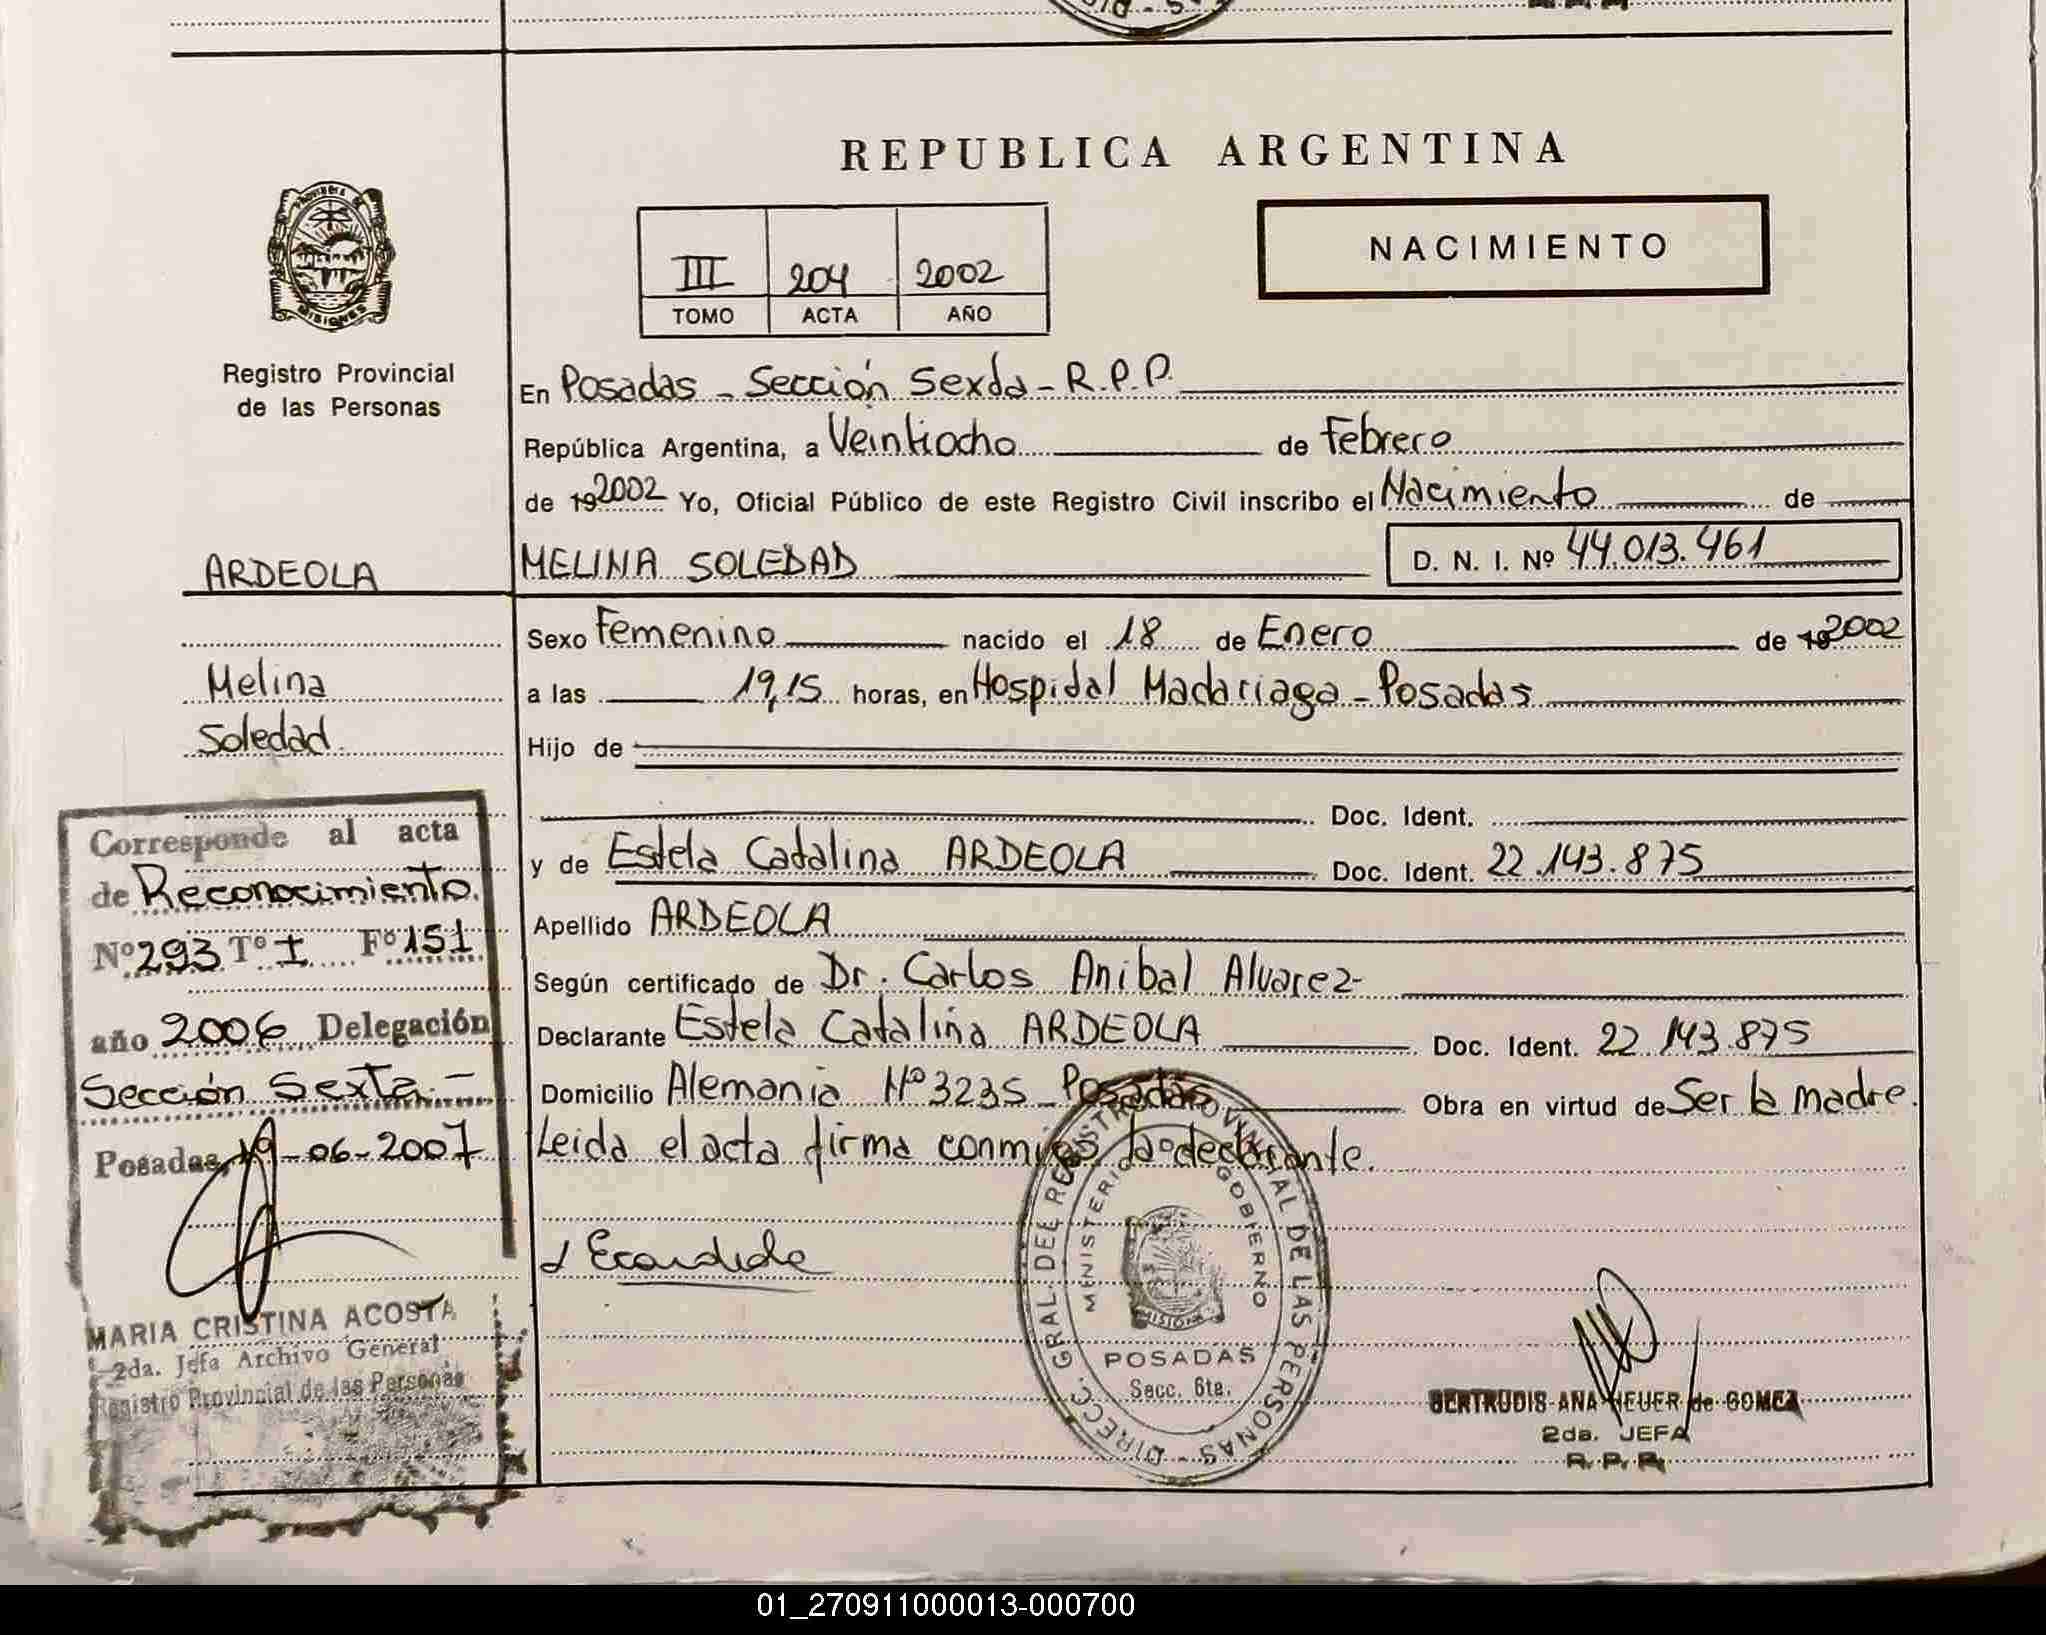 REPUBLICA ARGENTINA
NACIMIENTO
III 204 2002
TOMO ACTA AÑO
PROVINCIA DE
MISIONES
Registro Provincial
de las Personas
En Posadas - Sección Sexta - R.P.P.
República Argentina, a Veintiocho de Febrero
de 19 2002 Yo, Oficial Público de este Registro Civil inscribo el Nacimiento de
ARDEOLA MELINA SOLEDAD D. N. I. Nº 44.013.461
Sexo Femenino nacido el 18 de Enero de 19 2002
Melina
Soledad
a las 19,15 horas, en Hospital Madariaga - Posadas
Hijo de
Doc. Ident.
y de Estela Catalina ARDEOLA Doc. Ident. 22.143.875
Apellido ARDEOLA
Según certificado de Dr. Carlos Anibal Alvarez-
Declarante Estela Catalina ARDEOLA Doc. Ident. 22.143.875
Domicilio Alemania Nº 3235 - Posadas Obra en virtud de Ser la madre.
Leida el acta firma conmigo la declarante.
Corresponde al acta
de Reconocimiento.
Nº 293 Tº I Fº 151
año 2006 Delegación
Sección Sexta.-
Posadas, 19-06-2007
MARIA CRISTINA ACOSTA
2da. Jefa Archivo General
Registro Provincial de las Personas
DIRECC. GRAL. DEL REGISTRO PROVINCIAL DE LAS PERSONAS
MINISTERIO GOBIERNO
MISIONES
POSADAS
Secc. 6ta.
GERTRUDIS ANA HEUER de GOMEZ
2da. JEFA
R. P. P.
01_270911000013-000700